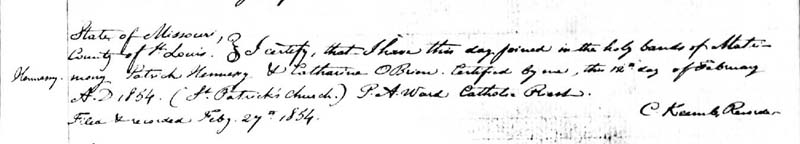 State of Missouri,
County of St Louis. } I certify, that I have this day joined in the holy bands of Matri-
Hennesy. mony Patrick Hennesy & Catharine O'Brien. Certified by me, this 12th day of February
A.D 1854. (St. Patrick's Church.) P. A. Ward Catholic Priest.
Filed & recorded Feby. 27th 1854. C. Keemle, Recorder